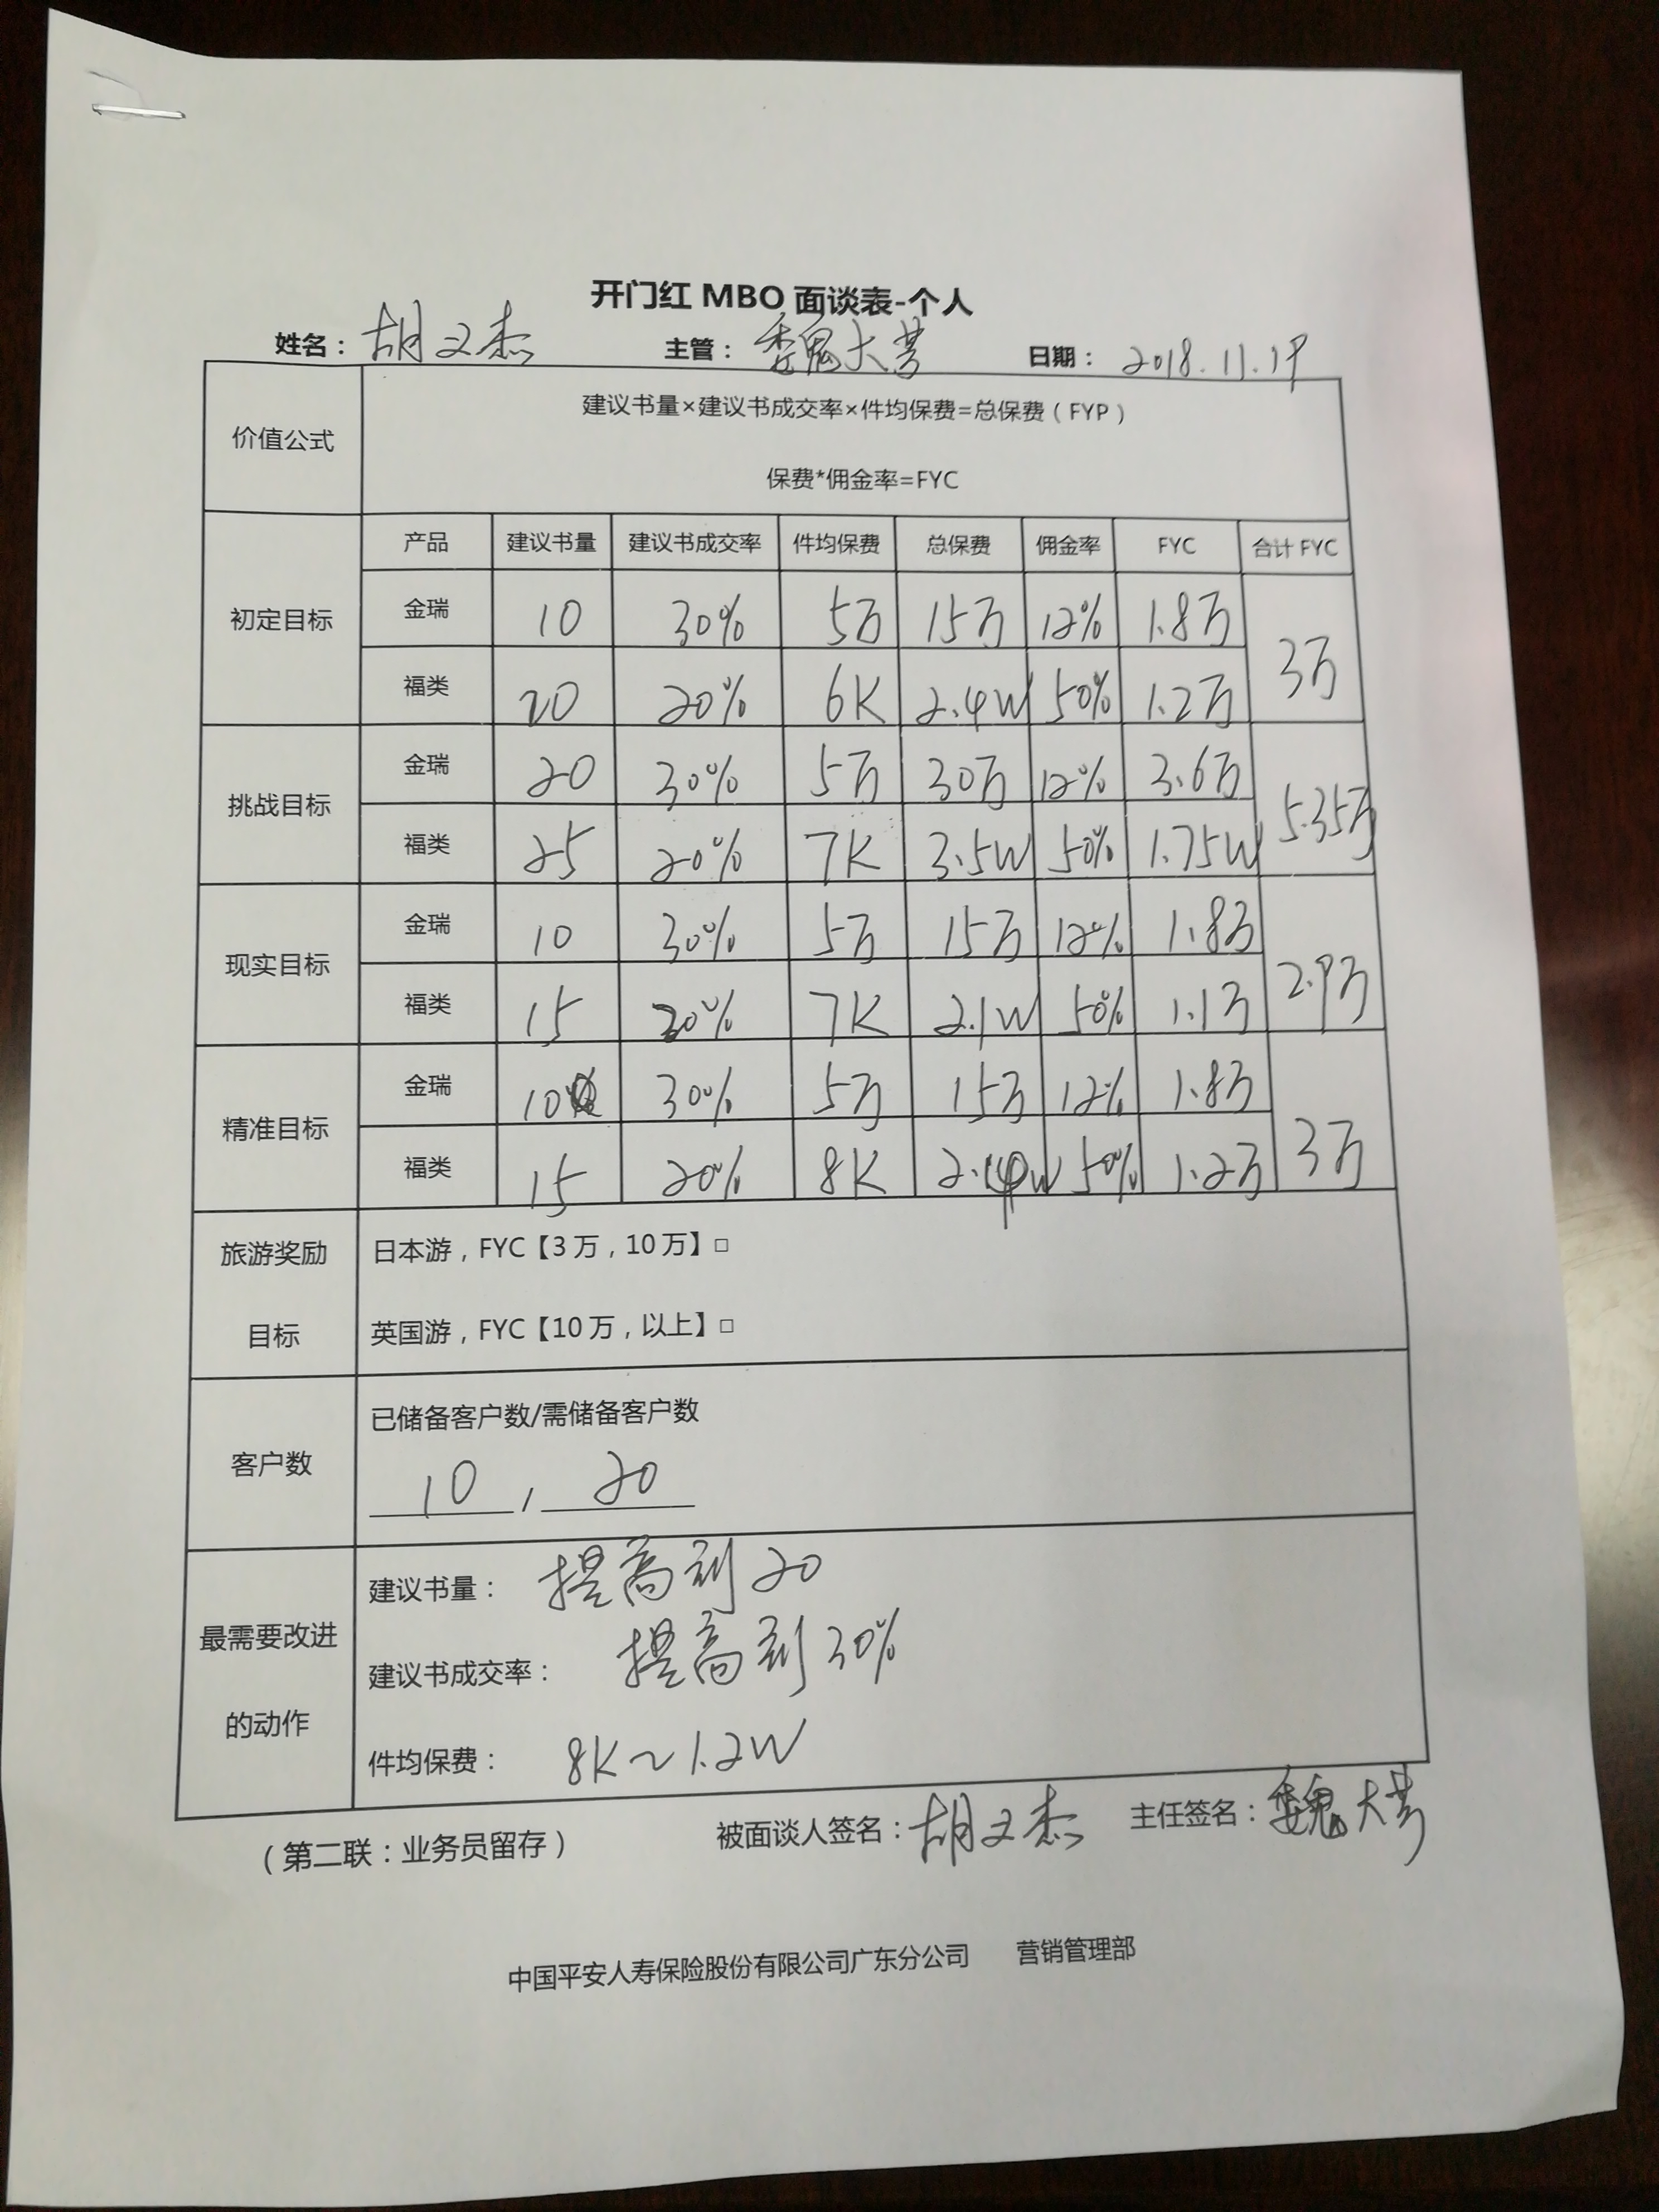 开门红 MBO 面谈表-个人
姓名：胡文杰 主管：魏大 日期：2018.11.19
价值公式
建议书量×建议书成交率×件均保费=总保费（FYP）
保费*佣金率=FYC
产品 建议书量 建议书成交率 件均保费 总保费 佣金率 FYC 合计 FYC
初定目标
金瑞 10 30% 5万 15万 12% 1.8万
福类 20 20% 6K 2.4W 50% 1.2万
3万
挑战目标
金瑞 20 30% 5万 30万 12% 3.6万
福类 25 20% 7K 3.5W 50% 1.75W
5.35万
现实目标
金瑞 10 30% 5万 15万 12% 1.8万
福类 15 20% 7K 2.1W 50% 1.1万
2.9万
精准目标
金瑞 10 30% 5万 15万 12% 1.8万
福类 15 20% 8K 2.4W 50% 1.2万
3万
旅游奖励
目标
日本游，FYC【3万，10万】□
英国游，FYC【10万，以上】□
客户数
已储备客户数/需储备客户数
10 , 20
最需要改进
的动作
建议书量： 提高到20
建议书成交率： 提高到30%
件均保费： 8K~1.2W
（第二联：业务员留存） 被面谈人签名：胡文杰 主任签名：魏大
中国平安人寿保险股份有限公司广东分公司 营销管理部